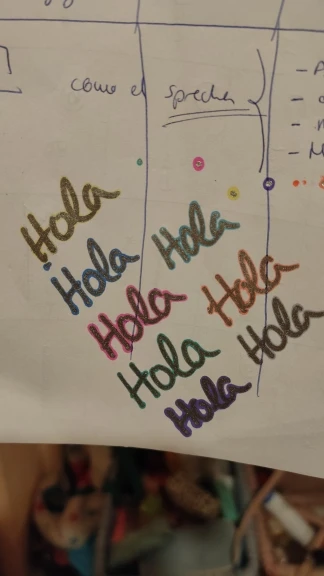 como el sprecher
Hola
Hola
Hola
Hola
Hola
Hola
Hola
Hola